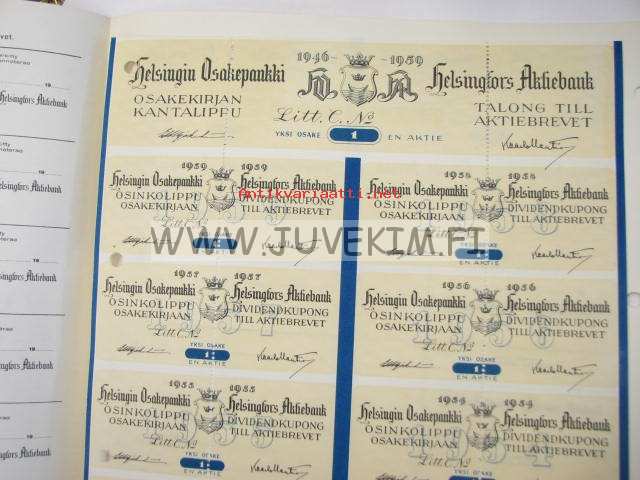 1946 - 1959
Helsingin Osakepankki
Helsingfors Aktiebank
OSAKEKIRJAN
KANTALIPPU
TALONG TILL
AKTIEBREVET
Litt. C. No
YKSI OSAKE 1 EN AKTIE
1959 1959
Helsingin Osakepankki Helsingfors Aktiebank
OSINKOLIPPU DIVIDENDKUPONG
OSAKEKIRJAAN TILL AKTIEBREVET
Litt. C. No
1958 1958
Helsingin Osakepankki Helsingfors Aktiebank
OSINKOLIPPU DIVIDENDKUPONG
OSAKEKIRJAAN TILL AKTIEBREVET
Litt. C. No
YKSI OSAKE
EN AKTIE
Antikvariaatti.net
WWW.JUVEKIM.FI
1957 1957
Helsingin Osakepankki Helsingfors Aktiebank
OSINKOLIPPU DIVIDENDKUPONG
OSAKEKIRJAAN TILL AKTIEBREVET
Litt. C. No
YKSI OSAKE
1:
EN AKTIE
1956 1956
Helsingin Osakepankki Helsingfors Aktiebank
OSINKOLIPPU DIVIDENDKUPONG
OSAKEKIRJAAN TILL AKTIEBREVET
Litt. C. No
YKSI OSAKE
1:
EN AKTIE
1955 1955
Helsingin Osakepankki Helsingfors Aktiebank
OSINKOLIPPU DIVIDENDKUPONG
OSAKEKIRJAAN TILL AKTIEBREVET
Litt. C. No
YKSI OSAKE
1:
1954 1954
Helsingin Osakepankki Helsingfors Aktiebank
OSINKOLIPPU DIVIDENDKUPONG
OSAKEKIRJAAN TILL AKTIEBREVET
Litt. C. No
YKSI OSAKE
19
Helsingfors Aktiebank
19
Helsingfors Aktiebank
19
Helsingfors Aktiebank
19